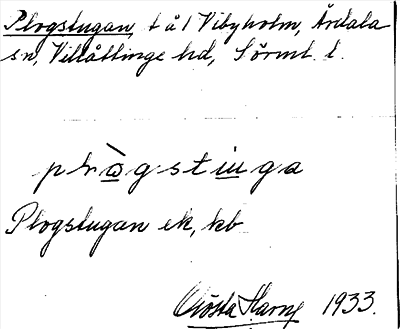 Plogstugan, t å l Vibyholm, Årdala
sn, Villåttinge hd, Sörml. l.
plògstuga
Plogstugan ek, kb
Gösta Harne 1933.